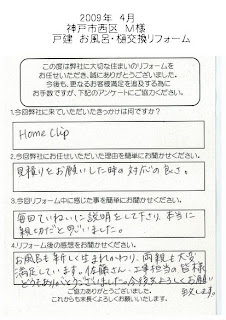 2009年 4月
神戸市西区 M様
戸建 お風呂・樋交換リフォーム
この度は弊社に大切な住まいのリフォームを
お任せいただき、誠にありがとうございました。
今後も、更なるお客様満足を追及する為に
お手数ですが、下記のアンケートにご協力ください。
1.今回弊社に来ていただいたきっかけは何ですか？
Home Clip
2.今回弊社にお任せいただいた理由を簡単にお聞かせください。
見積りをお願いした時の対応の良さ。
3.今回リフォーム中に感じた事を簡単にお聞かせください。
毎回ていねいに説明をして下さり、本当に
親切だと思いました。
4.リフォーム後の感想をお聞かせください。
お風呂も新しく生まれかわり、両親も大変
満足しています。佐藤さん、工事担当の皆様
どうもありがとうございました。今後もよろしくお願い
致します。
ご協力ありがとうございました。
これからも末長くよろしくお願いいたします。